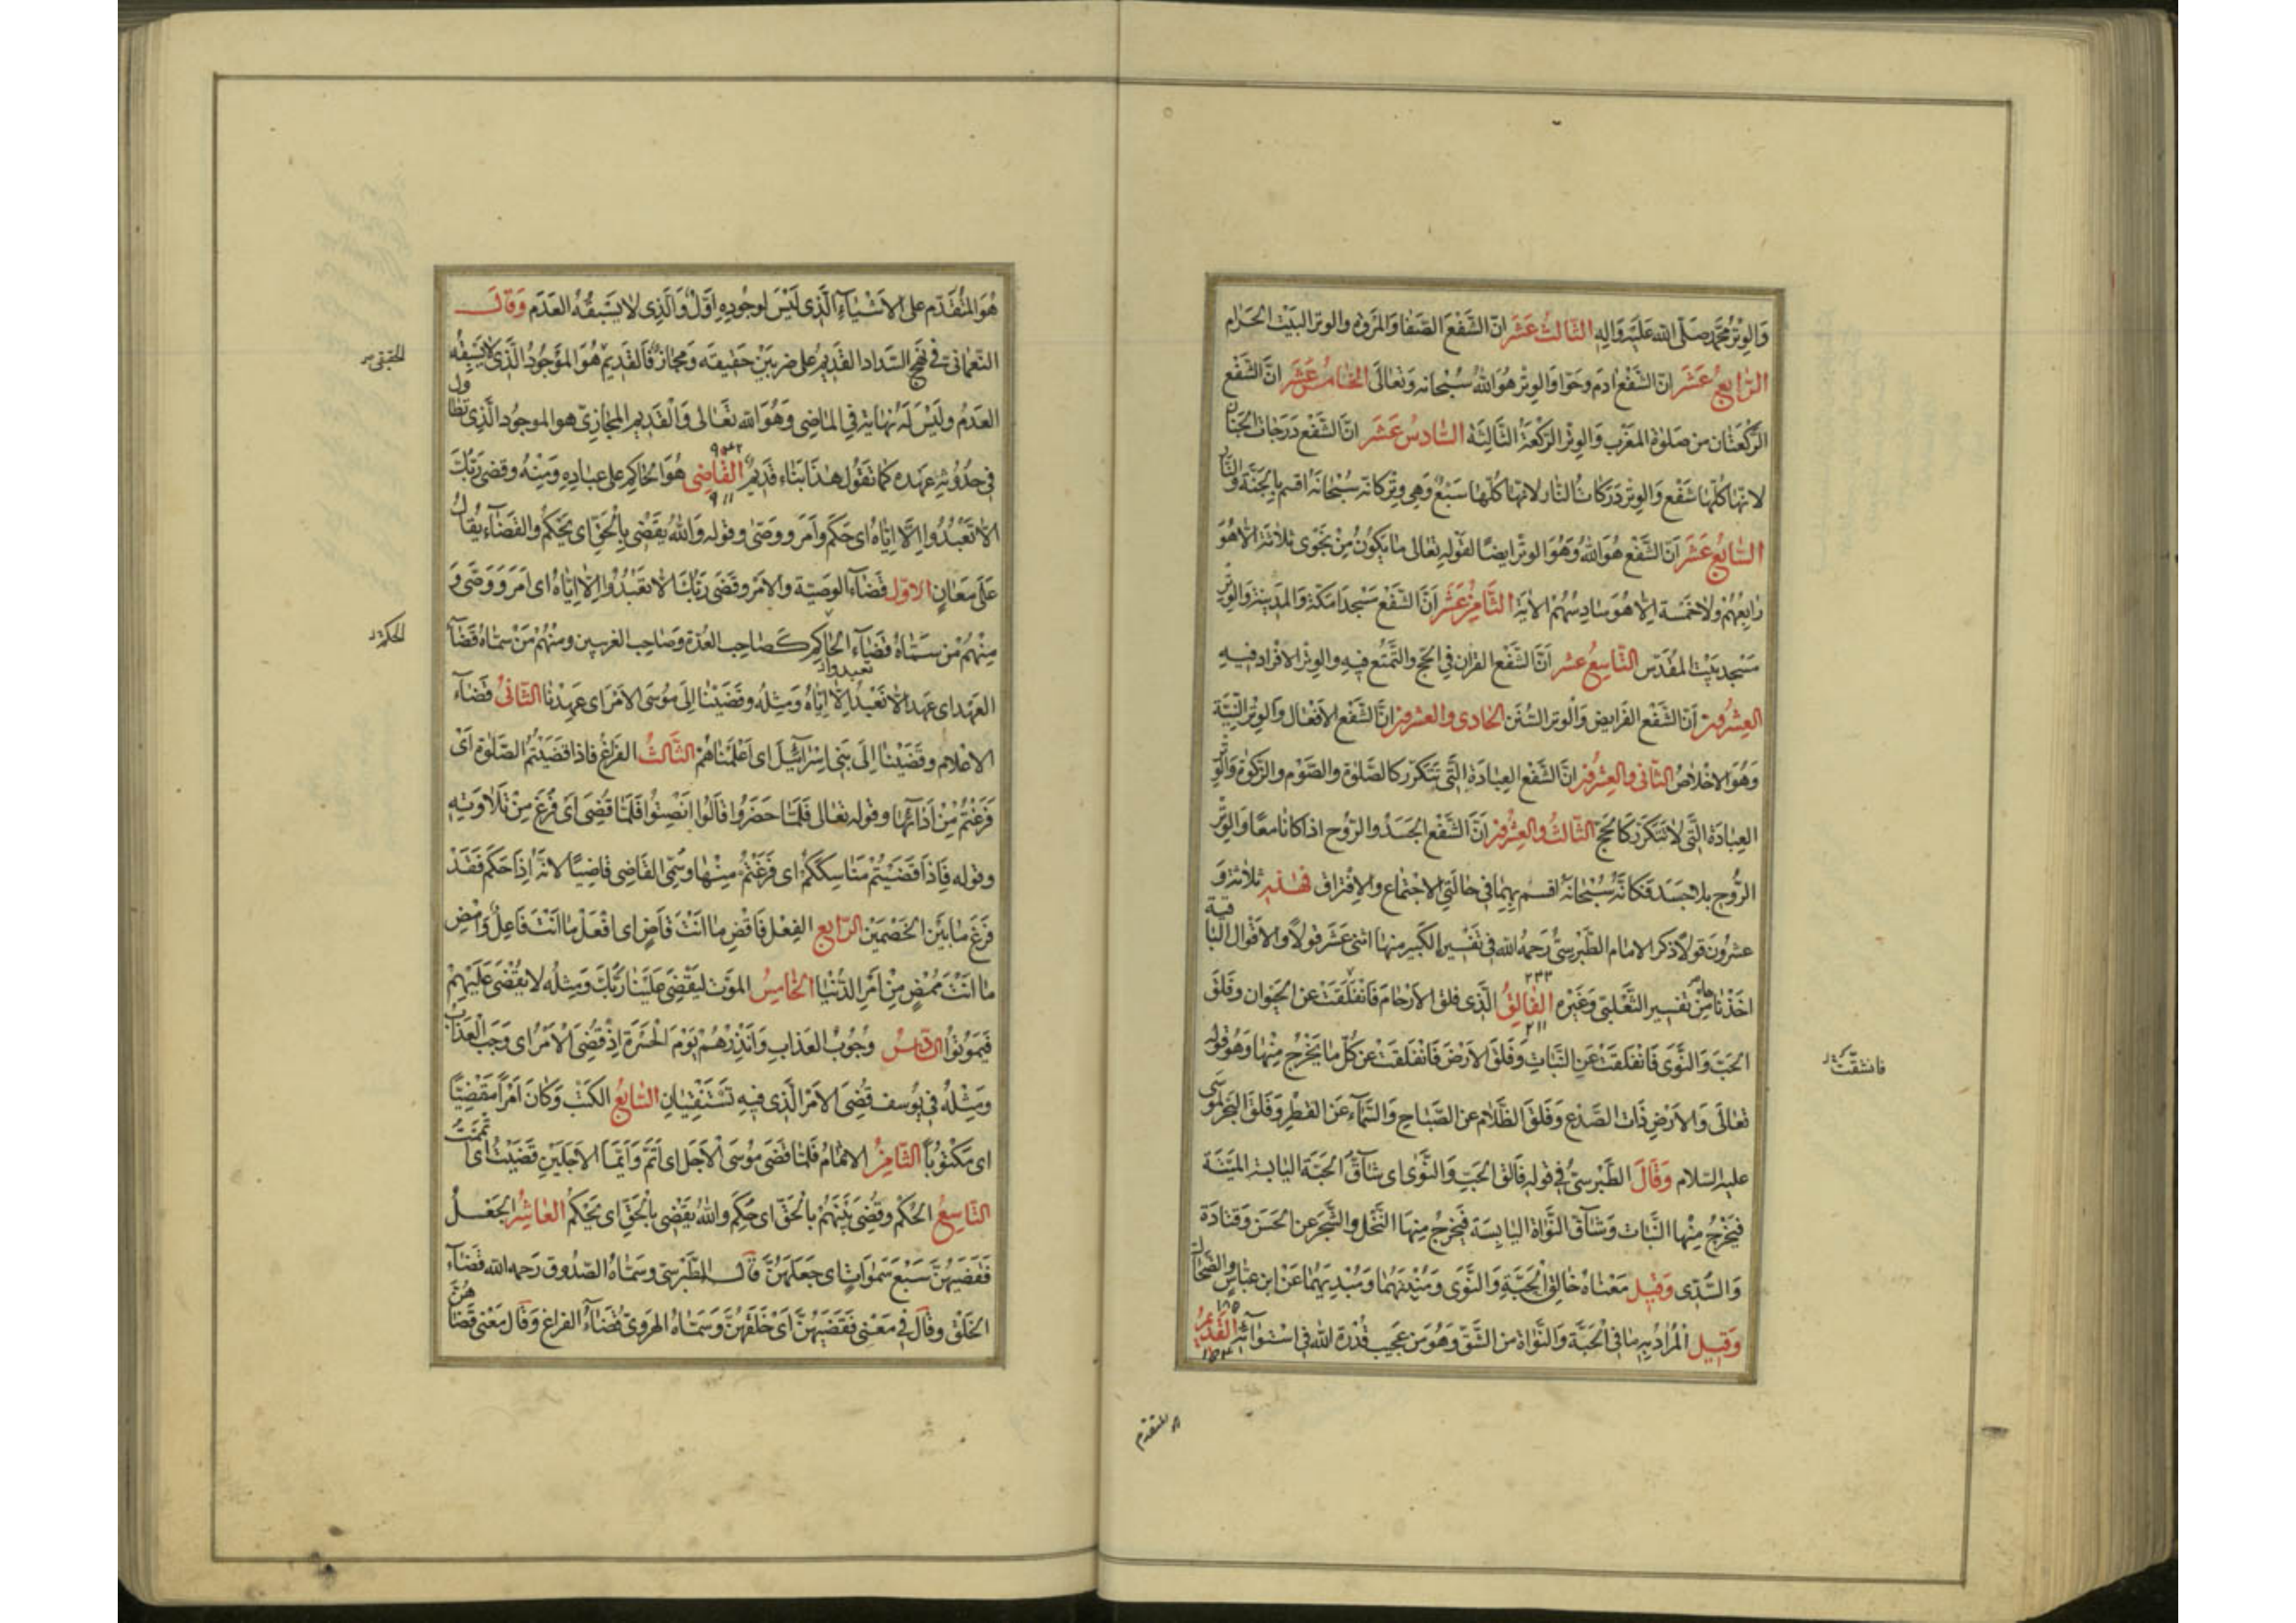 وَالوِتْرُ مُحَمَّد صَلَّى الله عَلَيْهِ وَاٰلِهِ الثَّالثُ عَشَرَ انّ الشَّفْعَ الصَّفَا وَالمَروَة والوتر البَيْت الحَرَام
الرَّابِعُ عَشَرَ انّ الشَّفْعَ ادَم وَحَوّا وَالوِتْرُ هُوَ اللهُ سُبْحانه وَتعَالَى الخَامسُ عَشَرَ انّ الشَّفْع
الرَّكْعَتَان من صَلوٰة المَغْرب وَالوِتْر الرَّكعَة الثَّالِثَة السَّادسُ عَشَرَ انّ الشَّفْع دَرَجَات الجنَان
لانّها كلّها شَفْع وَالوِتْر دَرَكاتُ النَّار لانّها كلّها سَبْعٌ وَهِى وِتْر كانّه سُبْحَانَهُ اقسم بِالجَنَّة وَالنَّار
السَّابعُ عَشَرَ اَنّ الشَّفْع هُوَ اللهُ وَهُوَ الوتْر ايضًا لقَوْله تعَالى مَا يَكُونُ مِنْ نَجْوى ثلاثة الا هُوَ
رَابِعُهُمْ وَلا خَمْسَة اِلّا هُوَ سَادِسُهُمْ الايَة الثَّامِنُ عَشَرَ اَنَّ الشَّفْع مَسْجدَا مَكّة وَالمَدِينَة وَالوِتْر
مَسْجد بَيْت المُقَدّس التَّاسِعُ عَشر اَنَّ الشَّفْع القران فى الحَج وَالتَّمَتّع فيه والوِتْر الافْراد فيهِ
العِشرُون اَنّ الشَّفْع الفَرايض وَالوتر السُّنَن الحَادى والعشرون انَّ الشَّفْع الافْعَال وَالوِتْر النِيَّة
وَهُوَ الاخْلاصُ الثَّانى والعِشرُون انّ الشَّفْع العِبَادَة الَّتى تتَكَرّر كالصَّلوٰة والصَّوْم والزّكوٰة وَالوِتْر
العِبَادَة الَّتى لا تَتَكَرّر كَالحَجّ الثَّالثُ والعِشرُون اَنَّ الشَّفْع الجَسَدُ والرّوح اذا كانا معًا وَالوِتْر
الرُّوح بلا جَسَد فَكَانَّهُ سُبْحَانَهُ اقسم بِهِمَا فى حَالَتَىِ الاجْتماع والافْتراق فهٰذه ثلاثة وَ
عشرُونَ قولاً ذكر الامام الطَّبْرسىّ رَحمهُ الله فى تَفسِيره الكَبير منها اثنى عَشَر قولاً والاقْوال البَاقية
اخَذْناها مِنْ تفسِير الثَّعْلبىّ وَغَيْره الفَالِقُ الَّذى فلق الاَرْحَام فَانفلَقَتْ عن الحيَوان وفلَقَ
الحَبّ وَالنَّوَى فَانْفلَقَتْ عَنِ النَّبَاتِ وَفلَقَ الاَرْضَ فَانْفلَقَتْ عَنْ كُلّ مَا يَخْرُجُ مِنْهَا وَهُوَ قوله
تعَالَى وَالاَرْضِ ذَات الصَّدْع وَفلَقَ الظَّلَام عن الصَّبَاح وَالسَّمَآء عَن القَطْر وَفلَقَ البَحْر لموسى
عليه السّلام وَقَالَ الطَّبْرسىّ فى قوله فَالق الحَبّ وَالنَّوٰى اى شَآقّ الحَبَّة اليَابسَة الميّتَة
فيَخْرُجُ مِنْها النَّبَات وَشَآق النَّوَاة اليَابِسَة فيَخرُجُ مِنهَا النَّخْل والشَّجَر عن الحَسَن وَقتَادَة
وَالسُّدّى وَقيل مَعْنَاهُ خَالِق الحَبَّة وَالنَّوَى وَمُنْبِتهُمَا وَمُبْدِيهِمَا عَنْ ابن عبّاس والضَّحّاك
وَقيل المُرادُ به مَا فى الحَبَّة وَالنَّوَاة من الشَّقّ وَهُوَ من عَجيب قدْرَة الله فى اسْتوَآئه القَديمُ
فانشقّت
المتقدّم
هُوَ المُتقَدّم على الاَشْيَاءِ الَّذى لَيْسَ لوجُودِه اَوّلٌ وَالَّذى لا يسْبقُهُ العَدَم وَقالَ
النّعمَانى فى نَهج السَّداد القَديمُ على ضربَيْنِ حَقِيقَه وَمَجَازٌ فَالقَديمُ هُوَ المَوْجُودُ الَّذى لا يَسْبقُه
العَدَمُ ولَيْسَ لَهُ نهَايَة فى المَاضِى وَهُوَ الله تعَالى وَالقَديم المجَازىّ هو الموجُود الَّذى تطاول
فى حدُوثِه عهده كما تقُول هذا بنَاء قديمٌ القَاضِى هُوَ الحَاكِم على عبَادِه وَمِنْهُ وقضى رَبُّك
الا تعْبُدُوا اِلّا ايّاهُ اى حَكَم وَاَمَر ووصّى وقوله وَاللهُ يَقضِى بِالحَقّ اى يَحْكُم والقَضَاء يُقَال
عَلَى مَعَانٍ الاوّل قضَاء الوصيّة وَالامْر وقضَى رَبُّكَ الّا تعْبُدُوا اِلّا ايّاهُ اى اَمَر وَوصَّى وَ
مِنهُمْ مَن سَمّاهُ قضَآء الحَاكِم كصَاحِب العُدّة وصَاحِب الغريبين ومنهُمْ مَنْ سمّاهُ قضَآء
العَهْد اى عَهد الّا تعبدوا اِلّا ايّاهُ وَمِثْله وقضَيْنَا اِلَى مُوسَى الامْر اى عَهِدْنا الثَّانى قضَاء
الاعْلام وقضَيْنَا اِلَى بَنِى اِسْرَآئيل اى اَعْلَمْناهُمْ الثَّالثُ الفَراغ فاذا قضَيْتُم الصَّلوٰة اَىْ
فَرَغْتُمْ مِنْ اَدَآئِهَا وقوله تعَالى فَلَمّا حَضَرُوهُ قالُوا انصِتُوا فلَمّا قُضِىَ اى فُرغَ مِنْ تلَاوتِه
وقوله فَاِذَا قضَيْتُم مَنَاسِكَكُمْ اى فرَغْتُمْ مِنْهَا وَسُمّى القَاضِى قاضِيًا لانّهُ اِذَا حَكَم فَقَدْ
فَرَغ مَا بَيْنَ الخَصْمَيْن الرَّابع الفِعْل فَاقْضِ مَا اَنْتَ قَاضٍ اى افْعَلْ مَا اَنْتَ فَاعِلٌ وَامْضِ
مَا اَنْتَ مُمْضٍ مِن اَمْرِ الدُّنْيَا الخَامِسُ الموْت ليَقْضِ عَلَيْنَا رَبُّك وَمِثلُه لا يُقْضَى عَلَيْهِمْ
فَيَمُوتُوا السَّادِسُ وجُوبُ العَذابِ وَاَنْذِرْهُمْ يَوْمَ الحَسْرَة اِذْ قُضِىَ الاَمْرُ اى وَجَبَ العَذَاب
وَمِثْلهُ فى يُوسف قُضِىَ الاَمْر الَّذى فيهِ تَسْتَفْتِيَانِ السَّابعُ الكَتْب وَكَانَ اَمْراً مَقْضِيًّا
اى مَكْتُوباً الثَّامِنُ الاتْمَامُ فلَمّا قضَى مُوسَى الاَجَل اى اَتَمّ وَاَيّمَا الاجَلَيْنِ قضَيْتُ اى تمَّمتُ
التَّاسِعُ الحُكْم وقُضِىَ بَيْنَهُمْ بالحَقّ اى حُكِمَ وَاللهُ يَقْضِى بِالحَقّ اى يَحْكُمُ العَاشِر الجَعْلُ
فَقَضَيهُنَّ سَبْعَ سَمٰوَاتٍ اى جَعَلَهُنَّ قالَ الطَّبْرسىّ وسَمّاهُ الصّدُوق رَحمه الله قضَآءَ
الخَلْق وقالَ فى مَعْنى فَقَضَيهُنّ اىْ خَلَقَهُنّ وَسَمّاهُ الهَروىّ قضَآءُ الفَراغ وَقَال مَعْنى قضَاهُنّ
الحقيقى
الحكم